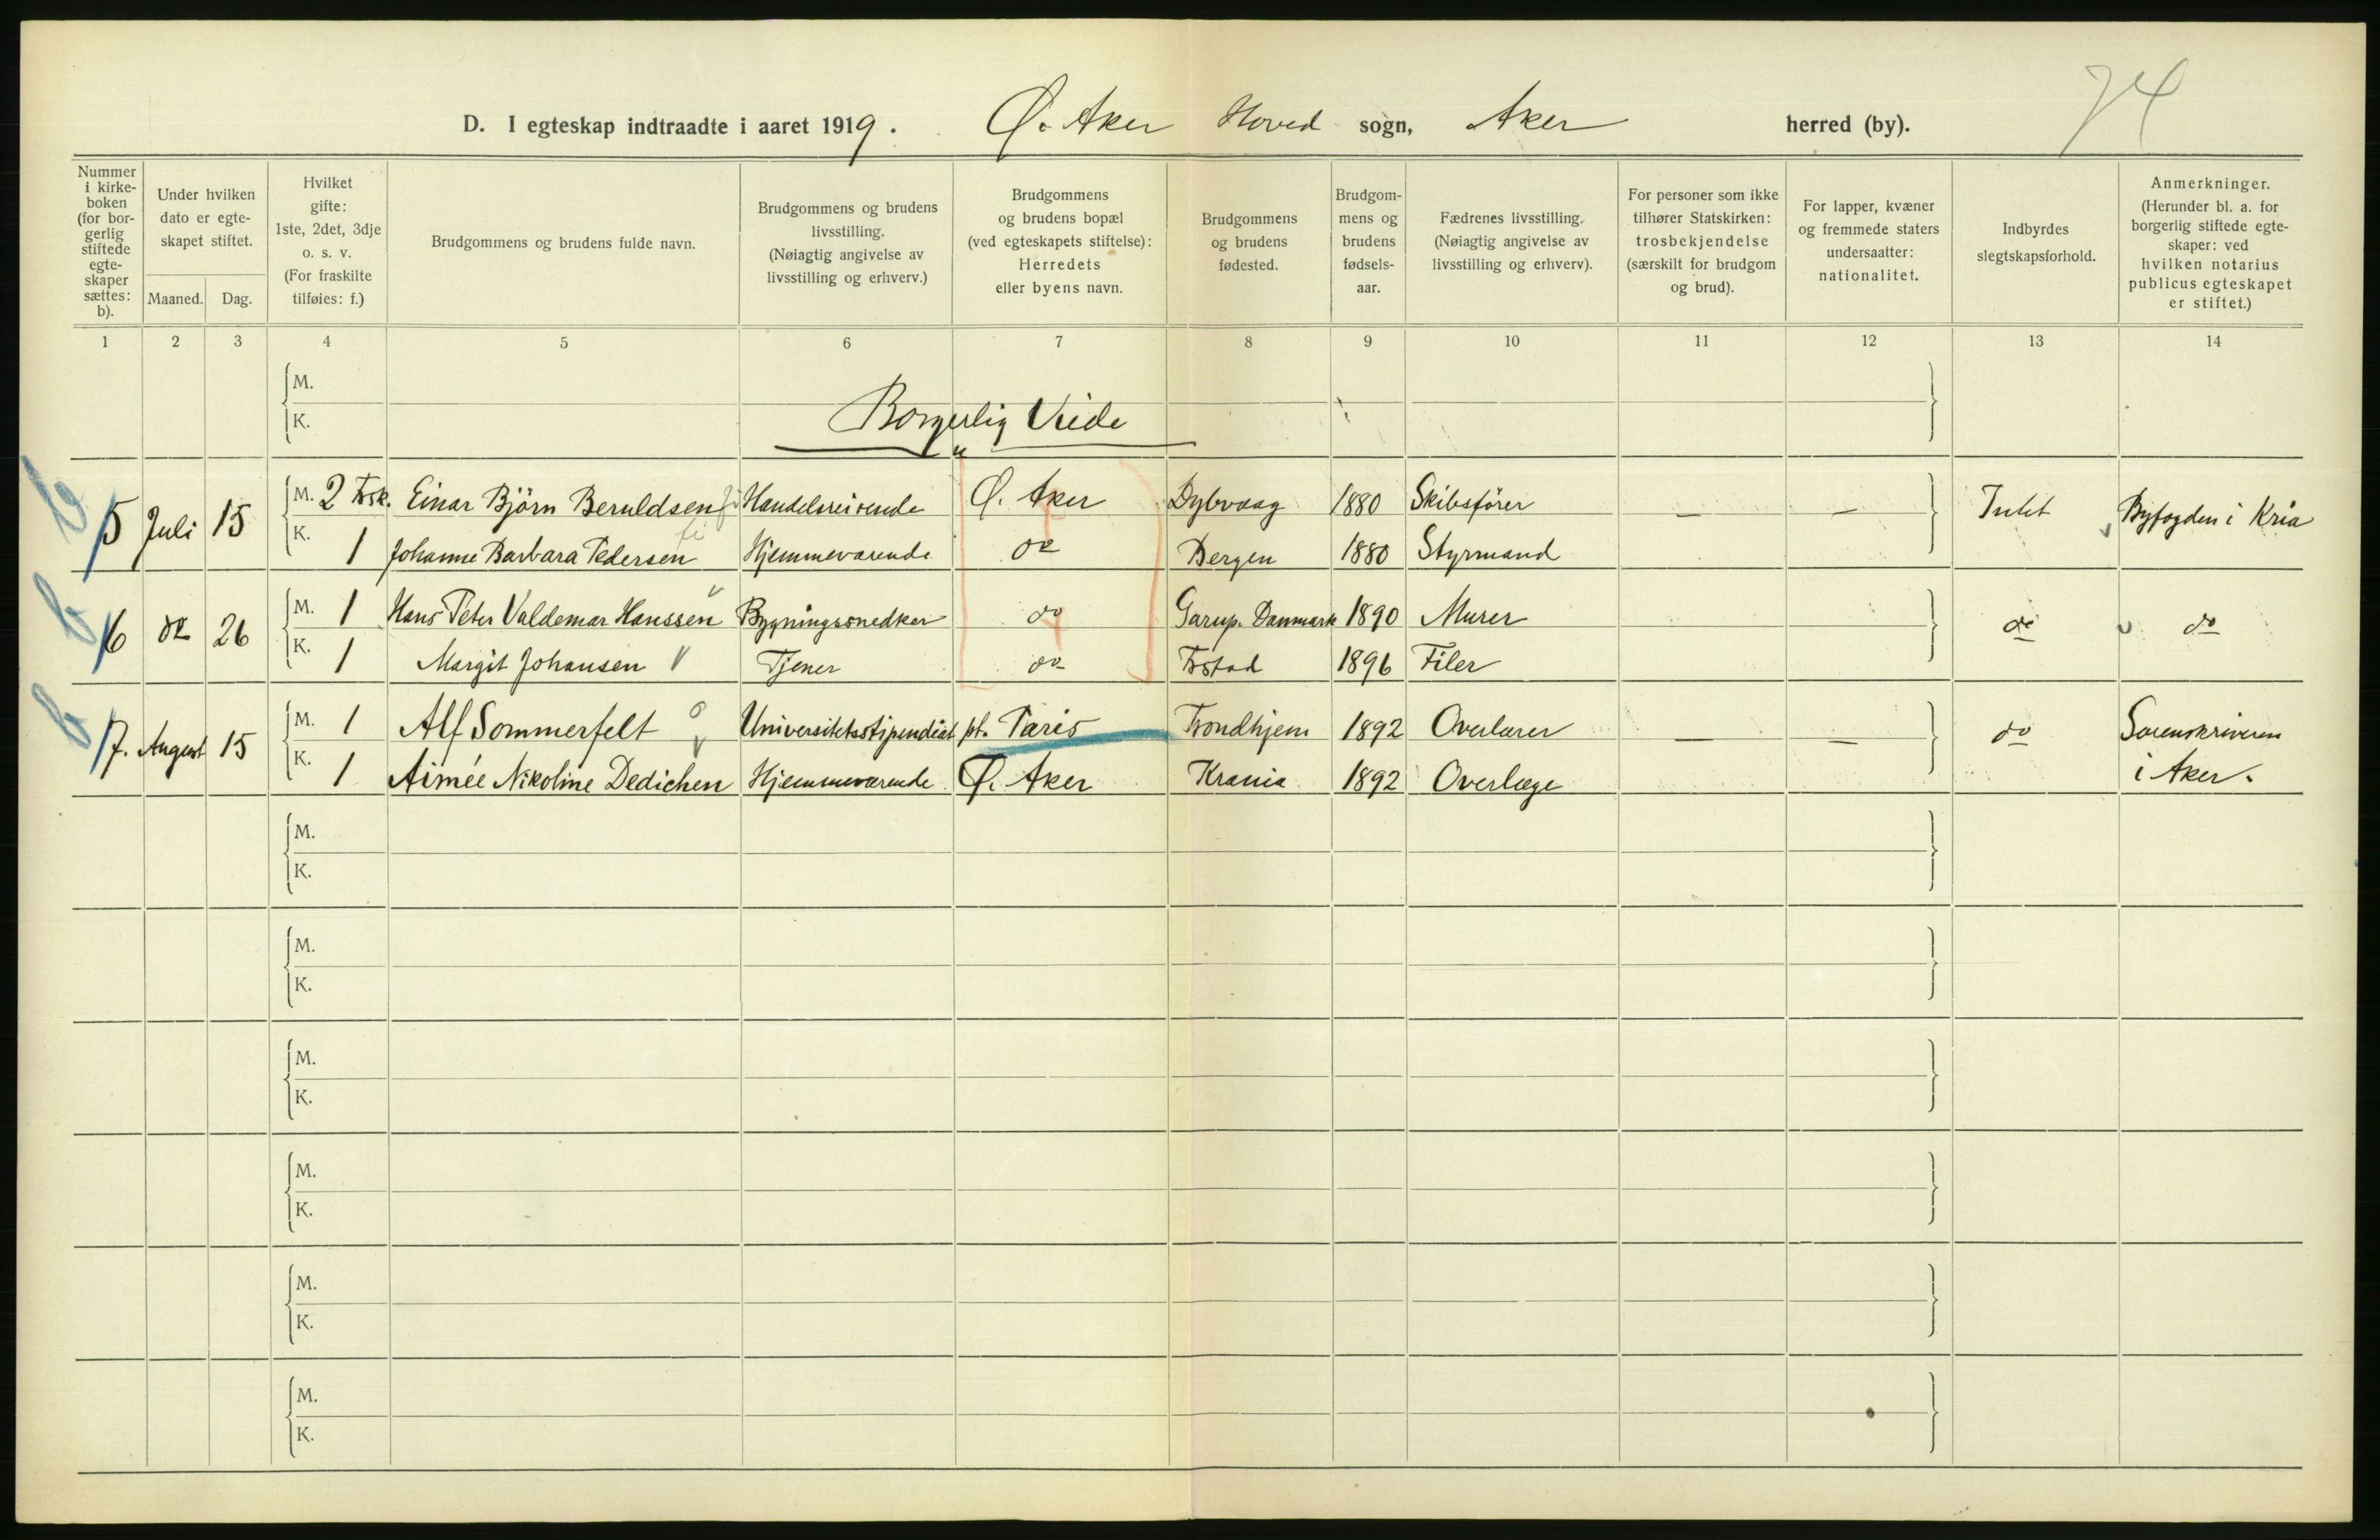 74
D. I egteskap indtraadte i aaret 1919. Ø. Aker Hoved sogn, Aker herred (by).
Nummer i kirke-boken (for bor-gerlig stiftede egte-skaper sættes: b).
Under hvilken dato er egte-skapet stiftet.
Maaned. Dag.
Hvilket gifte: 1ste, 2det, 3dje o. s. v. (For fraskilte tilføies: f.)
Brudgommens og brudens fulde navn.
Brudgommens og brudens livsstilling. (Nøiagtig angivelse av livsstilling og erhverv.)
Brudgommens og brudens bopæl (ved egteskapets stiftelse): Herredets eller byens navn.
Brudgommens og brudens fødested.
Brudgom-mens og brudens fødsels-aar.
Fædrenes livsstilling. (Nøiagtig angivelse av livsstilling og erhverv).
For personer som ikke tilhører Statskirken: trosbekjendelse (særskilt for brudgom og brud).
For lapper, kvæner og fremmede staters undersaatter: nationalitet.
Indbyrdes slegtskapsforhold.
Anmerkninger. (Herunder bl. a. for borgerlig stiftede egte-skaper: ved hvilken notarius publicus egteskapet er stiftet.)
1 2 3 4 5 6 7 8 9 10 11 12 13 14
M.
K.
Borgerlig Viede
b 5 Juli 15 M. 2 Frsk. Einar Björn Beruldsen Handelsreisende Ø. Aker Dybvaag 1880 Skibsfører — — Intet Byfogden i Kria
K. 1 Johanne Barbara Pedersen Hjemmeværende do Bergen 1880 Styrmand
b 6 do 26 M. 1 Hans Peter Valdemar Hanssen Bygningssnedker do Garup. Danmark 1890 Murer do do
K. 1 Margit Johansen Tjener do Frstad 1896 Filer
b 7. August 15 M. 1 Alf Sommerfelt Universitetsstipendiat pt. Paris Trondhjem 1892 Overlærer — — do Sorenskriveren
K. 1 Aimée Nikoline Dedichen Hjemmeværende Ø. Aker Krania 1892 Overlæge i Aker.
M.
K.
M.
K.
M.
K.
M.
K.
M.
K.
M.
K.